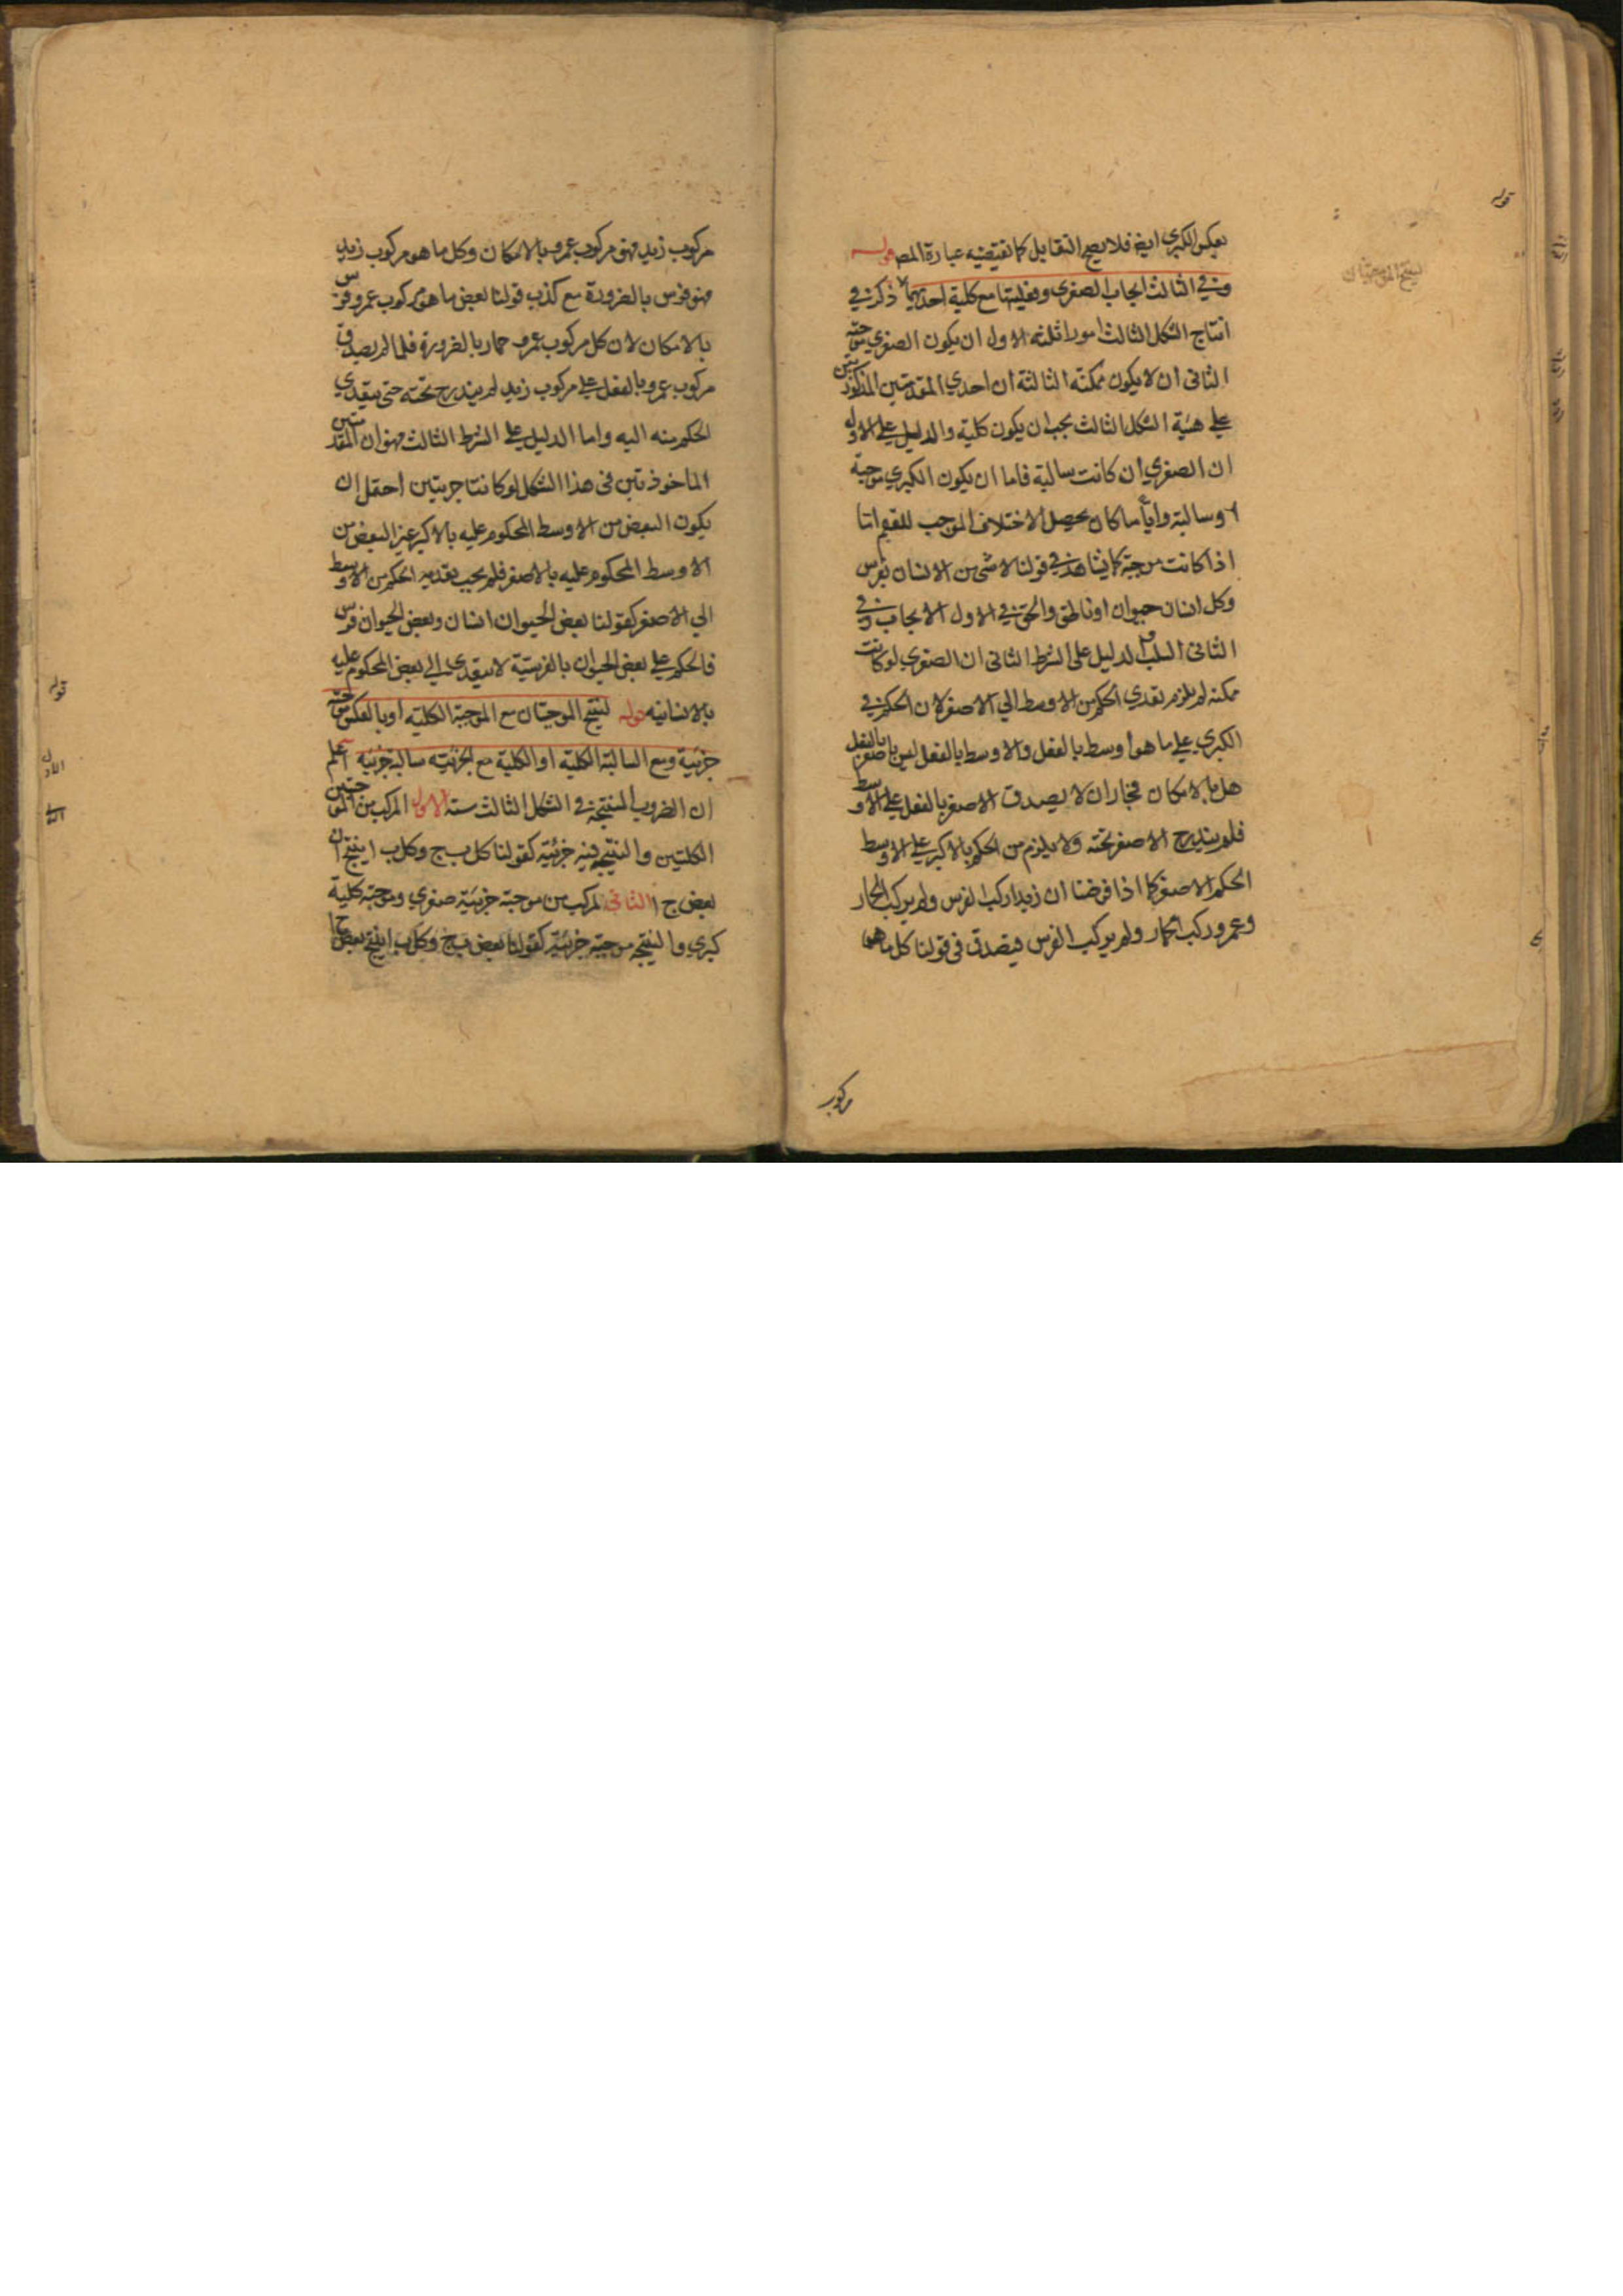 بعكس الكبرى ايضا فلا يصح التقابل كما تقتضيه عبارة المص قوله
وفي الثالث ايجاب الصغرى وفعليتها مع كلية احديهما ذكر في
انتاج الشكل الثالث امورا ثلثة الاول ان يكون الصغرى موجبة
الثانى ان لا يكون ممكنة الثالثة ان احدي المقدمتين المذكورتين
علي هيئة الشكل الثالث يجب ان يكون كلية والدليل علي الاول
ان الصغري ان كانت سالبة فاما ان يكون الكبري موجبة
او سالبة وايا ما كان يحصل الاختلاف الموجب للعقم اما
اذا كانت موجبة كما في قولنا لا شى من الانسان بفرس
وكل انسان حيوان او ناطق والحق في الاول الايجاب وفي
الثانى السلب والدليل على الشرط الثانى ان الصغري لو كانت
ممكنة لم يلزم تعدي الحكم من الاوسط الي الاصغر لان الحكم في
الكبري علي ما هو اوسط بالفعل والاوسط بالفعل ليس باصغر بالفعل
هل بالامكان فجاز ان لا يصدق الاصغر بالفعل علي الاوسط
فلم يندرج الاصغر تحته ولا يلزم من الحكم بالاكبر علي الاوسط
الحكم الاصغر كما اذا فرضنا ان زيدا ركب الفرس ولم يركب الحمار
وعمرو ركب الحمار ولم يركب الفرس فيصدق فى قولنا كل ما هو
مركوب
قوله
ينتج الموجبتان
مركوب زيد فهو مركوب عمرو بالامكان وكل ما هو مركوب زيد
فهو فرس بالضرورة مع كذب قولنا بعض ما هو مركوب عمرو فرس
بالامكان لان كل مركوب عمرو حمار بالضرورة فلما لم يصدق
مركوب عمرو بالفعل علي مركوب زيد لم يندرج تحته حتى يتعدي
الحكم منه اليه واما الدليل علي الشرط الثالث فهو ان المقدمتين
الماخوذتين فى هذا الشكل لو كانتا جزئيتين احتمل ان
يكون البعض من الاوسط المحكوم عليه بالاكبر غير البعض من
الاوسط المحكوم عليه بالاصغر فلم يجب تعدية الحكم من الاوسط
الي الاصغر كقولنا بعض الحيوان انسان وبعض الحيوان فرس
فالحكم علي بعض الحيوان بالفرسية لا يتعدى الي بعض المحكوم عليه
بالانسانية قوله لينتج الموجبتان مع الموجبة الكلية او بالعكس موجبة
جزئية ومع السالبة الكلية او الكلية مع الجزئية سالبة جزئية اعلم
ان الضروب المنتجة في الشكل الثالث ستة الاول المركب من الموجبتين
الكليتين والنتيجة فيه جزئية كقولنا كل ب ج وكل ب ا ينتج ان
بعض ج ا الثانى المركب من موجبة جزئية صغري وموجبة كلية
كبري والنتيجة موجبة جزئية كقولنا بعض ب ج وكل ب ا ينتج بعض ج ا
قوله
الاول